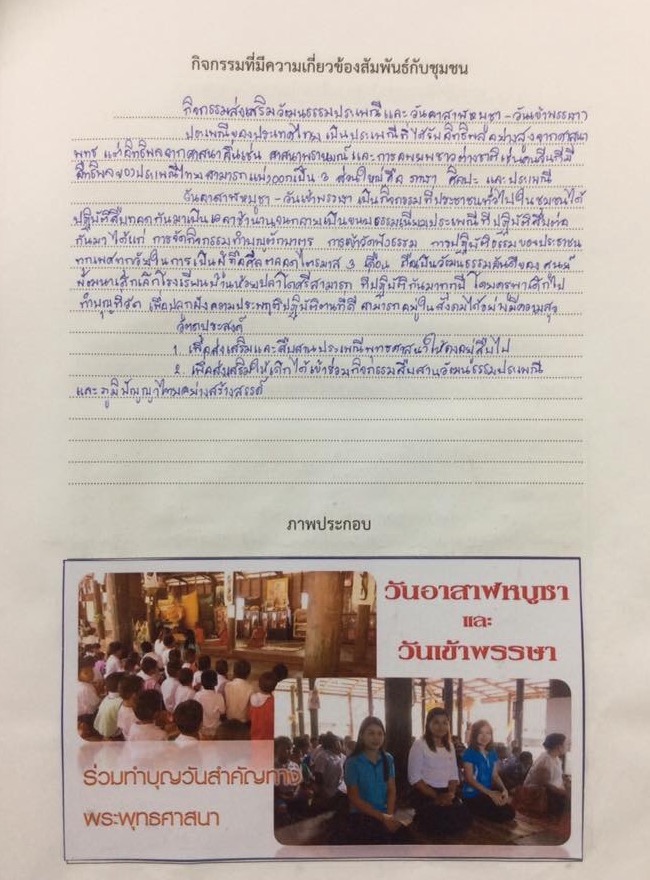 กิจกรรมที่มีความเกี่ยวข้องสัมพันธ์กับชุมชน
กิจกรรมส่งเสริมวัฒนธรรมประเพณีและวันอาสาฬหบูชา - วันเข้าพรรษา
ประเพณีของประเทศไทย เป็นประเพณีที่ได้รับอิทธิพลอย่างสูงจากศาสนา
พุทธ แต่อิทธิพลจากศาสนาอื่นเช่น ศาสนาพราหมณ์และการอพยพชาวต่างชาติเช่นคนจีนก็มี
อิทธิพลของประเพณีไทยสามารถแบ่งออกเป็น 3 ส่วนใหญ่คือ ภาษา ศิลปะ และประเพณี
วันอาสาฬหบูชา - วันเข้าพรรษา เป็นกิจกรรมที่ประชาชนทั่วไปในชุมชนได้
ปฏิบัติสืบทอดกันมาเป็นเวลาช้านานจนกลายเป็นขนบธรรมเนียมประเพณีที่ปฏิบัติสืบต่อ
กันมา ได้แก่ การจัดกิจกรรมทำบุญตักบาตร การเข้าวัดฟังธรรม การปฏิบัติธรรมของประชาชน
ทุกเพศทุกวัยในการเป็นผู้ถือศีลตลอดไตรมาส 3 เดือน ถือเป็นวัฒนธรรมอันดีของ ศูนย์
พัฒนาเด็กเล็กโรงเรียนบ้านห้วยปลาโดศรีสามารถ ที่ปฏิบัติกันมาทุกปี โดยครูพาเด็กไป
ทำบุญที่วัด เพื่อปลูกฝังความประพฤติปฏิบัติตนที่ดี สามารถอยู่ในสังคมได้อย่างมีความสุข
วัตถุประสงค์
1. เพื่อส่งเสริมและสืบสานประเพณีพุทธศาสนาให้คงอยู่สืบไป
2. เพื่อส่งเสริมให้เด็กได้เข้าร่วมกิจกรรมสืบสานวัฒนธรรมประเพณี
และภูมิปัญญาไทยอย่างสร้างสรรค์
ภาพประกอบ
วันอาสาฬหบูชา
และ
วันเข้าพรรษา
ร่วมทำบุญวันสำคัญทาง
พระพุทธศาสนา